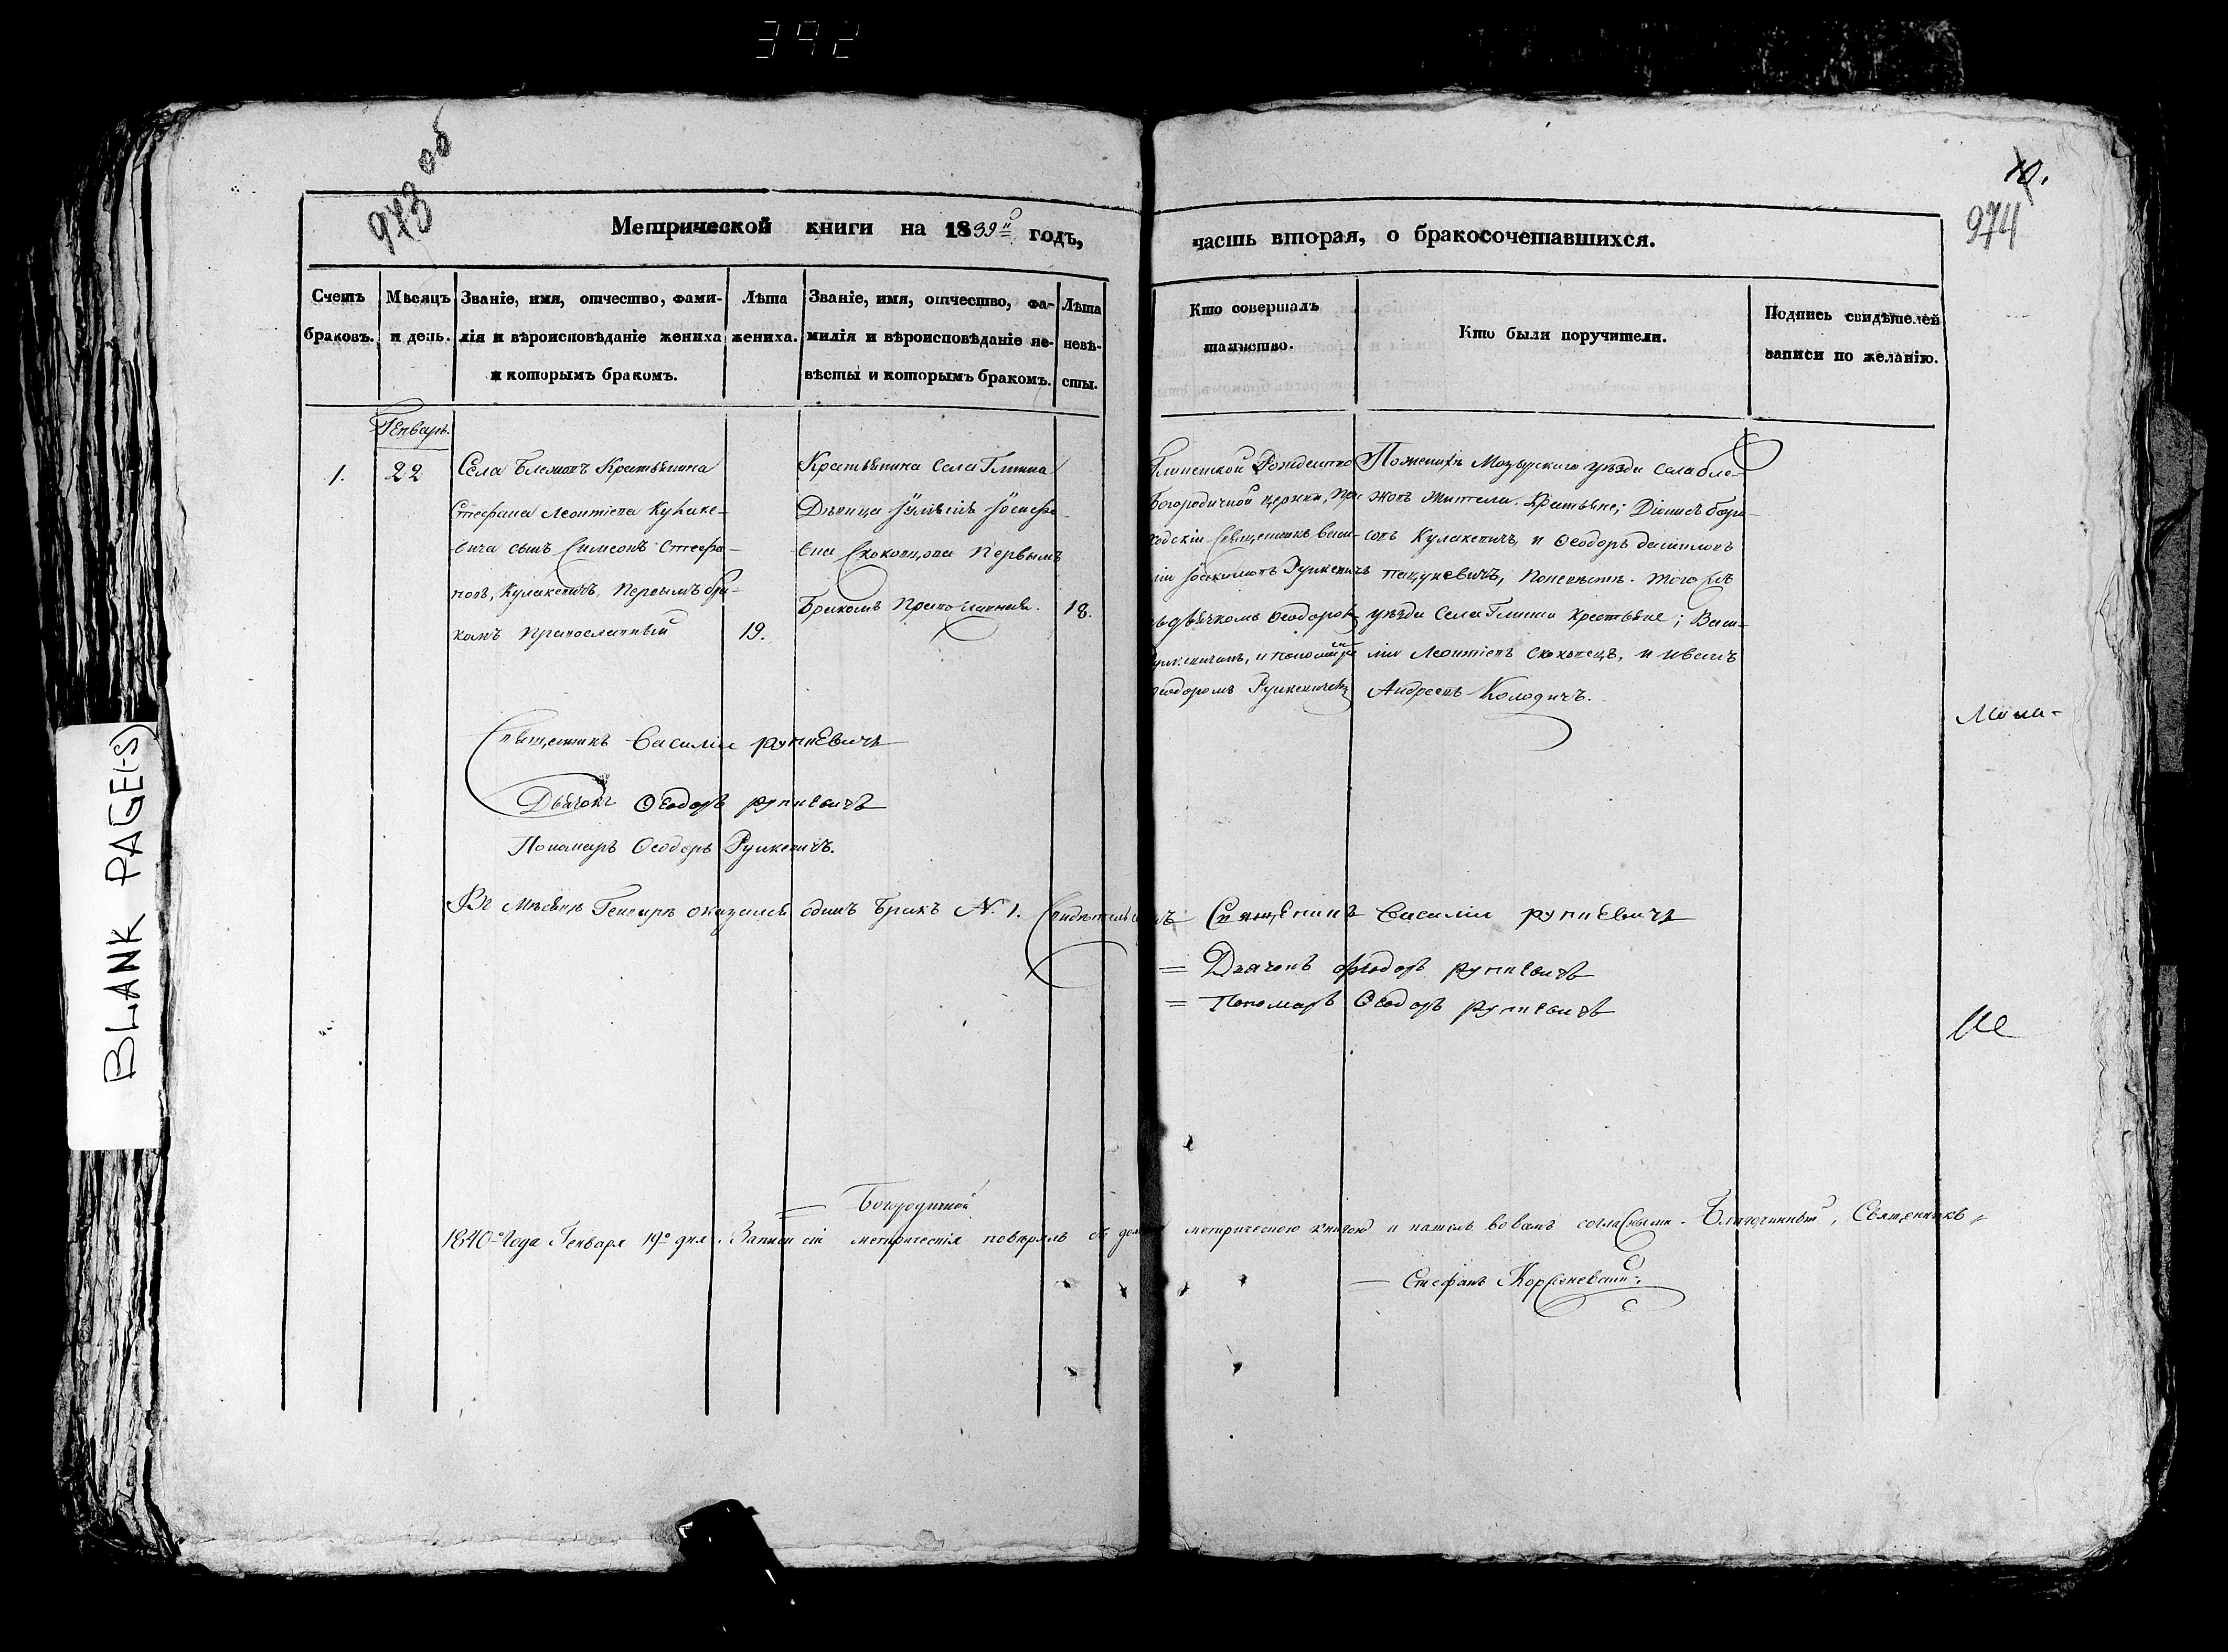 392
973 об
10.
974
Метрической книги на 1839й годъ,
часть вторая, о бракосочетавшихся.
Счетъ браковъ.
Мѣсяцъ и день.
Званіе, имя, отчество, фами-
лія и вѣроисповѣданіе жениха
и которымъ бракомъ.
Лѣта
жениха.
Званіе, имя, отчество, фа-
милія и вѣроисповѣданіе не-
вѣсты и которымъ бракомъ.
Лѣта
невѣ-
сты.
Кто совершалъ
таинство.
Кто были поручители.
Подпись свидѣтелей
записи по желанію.
Генварь.
1.
22
Села Бляжовъ Крестьянина
Стефана Леонтіева Кулаке-
вича сынъ Симеонъ Стефа-
новъ, Кулакевичъ, первымъ бра-
комъ православный
19.
Крестьянина села Глинна
Дѣвица Іосифо-
вна Скоковцова первымъ
бракомъ православная.
18.
Глинской Рождество
Богородичной церкви, при
ходскій Священникъ Васи-
лій Іоакимовъ Рункевичъ
съ дьячкомъ Феодоромъ
Рункевичемъ, и пономаремъ
Феодоромъ Рункевичемъ
По женихѣ Мозырскаго уѣзда села бле-
жовъ жители. Крестьяне; Діонисъ бори-
совъ Кулакевичъ, и Феодоръ даниловъ
Пацукевичъ, по невѣстѣ. того жъ
уѣзда села Глинна крестьяне; Васи-
лій Леонтіевъ Скоковецъ, и Иванъ
Андреевъ Колодичъ.
Священникъ Василій рункевичъ
Дьячокъ Феодоръ рункевичъ
Пономаръ Феодоръ Рункевичъ.
Въ мѣсяцѣ Генварѣ оказался одинъ бракъ №. 1. Свидѣтельствуемъ
Священникъ Василій рункевичъ
= Дьячокъ Феодоръ рункевичъ
= Пономаръ Феодоръ рункевичъ
= Богородичной
1840-го года Генваря 19го дня. Записи сіи метрическія повѣрялъ съ метрическою книгою и нашолъ во всемъ согласными. Благочинный, Священникъ
— Стефанъ
BLANK PAGE(-S)